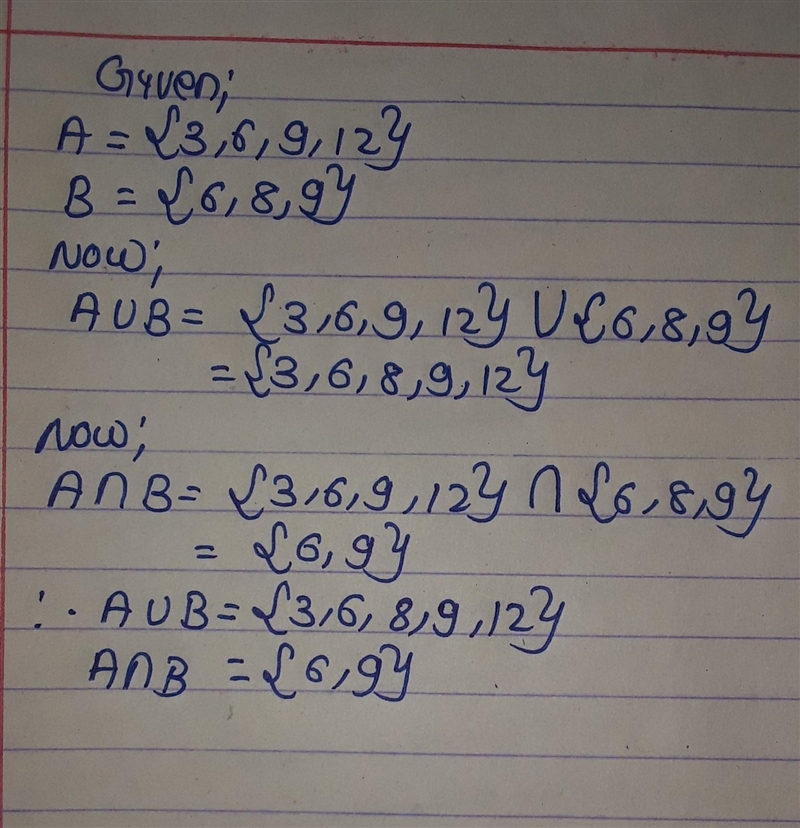 Given;
A = {3,6,9,12}
B = {6,8,9}
Now;
A∪B = {3,6,9,12} ∪ {6,8,9}
= {3,6,8,9,12}
Now;
A∩B = {3,6,9,12} ∩ {6,8,9}
= {6,9}
∴ A∪B = {3,6,8,9,12}
A∩B = {6,9}